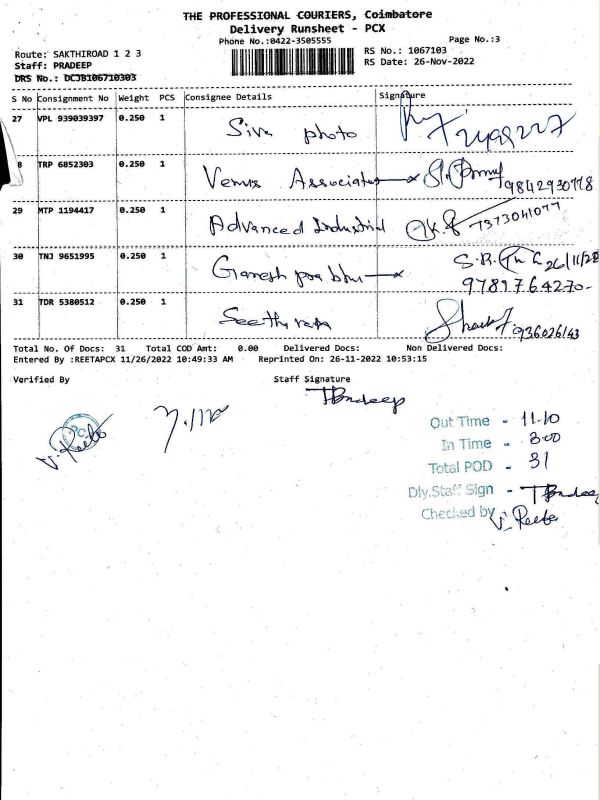 THE PROFESSIONAL COURIERS, Coimbatore
Delivery Runsheet - PCX
Phone No.:0422-3505555
Page No.:3
Route: SAKTHIROAD 1 2 3
RS No.: 1067103
Staff: PRADEEP
RS Date: 26-Nov-2022
DRS No.: DCJB106710303
S No Consignment No Weight PCS Consignee Details Signature
27 VPL 939039397 0.250 1 Siva photo
8 TRP 6852303 0.250 1 Venus Associates 9842930118
29 MTP 1194417 0.250 1 Advanced Industrial 7373041077
30 TNJ 9651995 0.250 1 Ganesh prabhu S.R. 26/11/22
9789764270
31 TDR 5380512 0.250 1 Seetharam 936026143
Total No. Of Docs: 31 Total COD Amt: 0.00 Delivered Docs: Non Delivered Docs:
Entered By :REETAPCX 11/26/2022 10:49:33 AM Reprinted On: 26-11-2022 10:53:15
Verified By Staff Signature
Out Time - 11.10
In Time - 3.00
Total POD - 31
Dly.Staff Sign -
Checked by